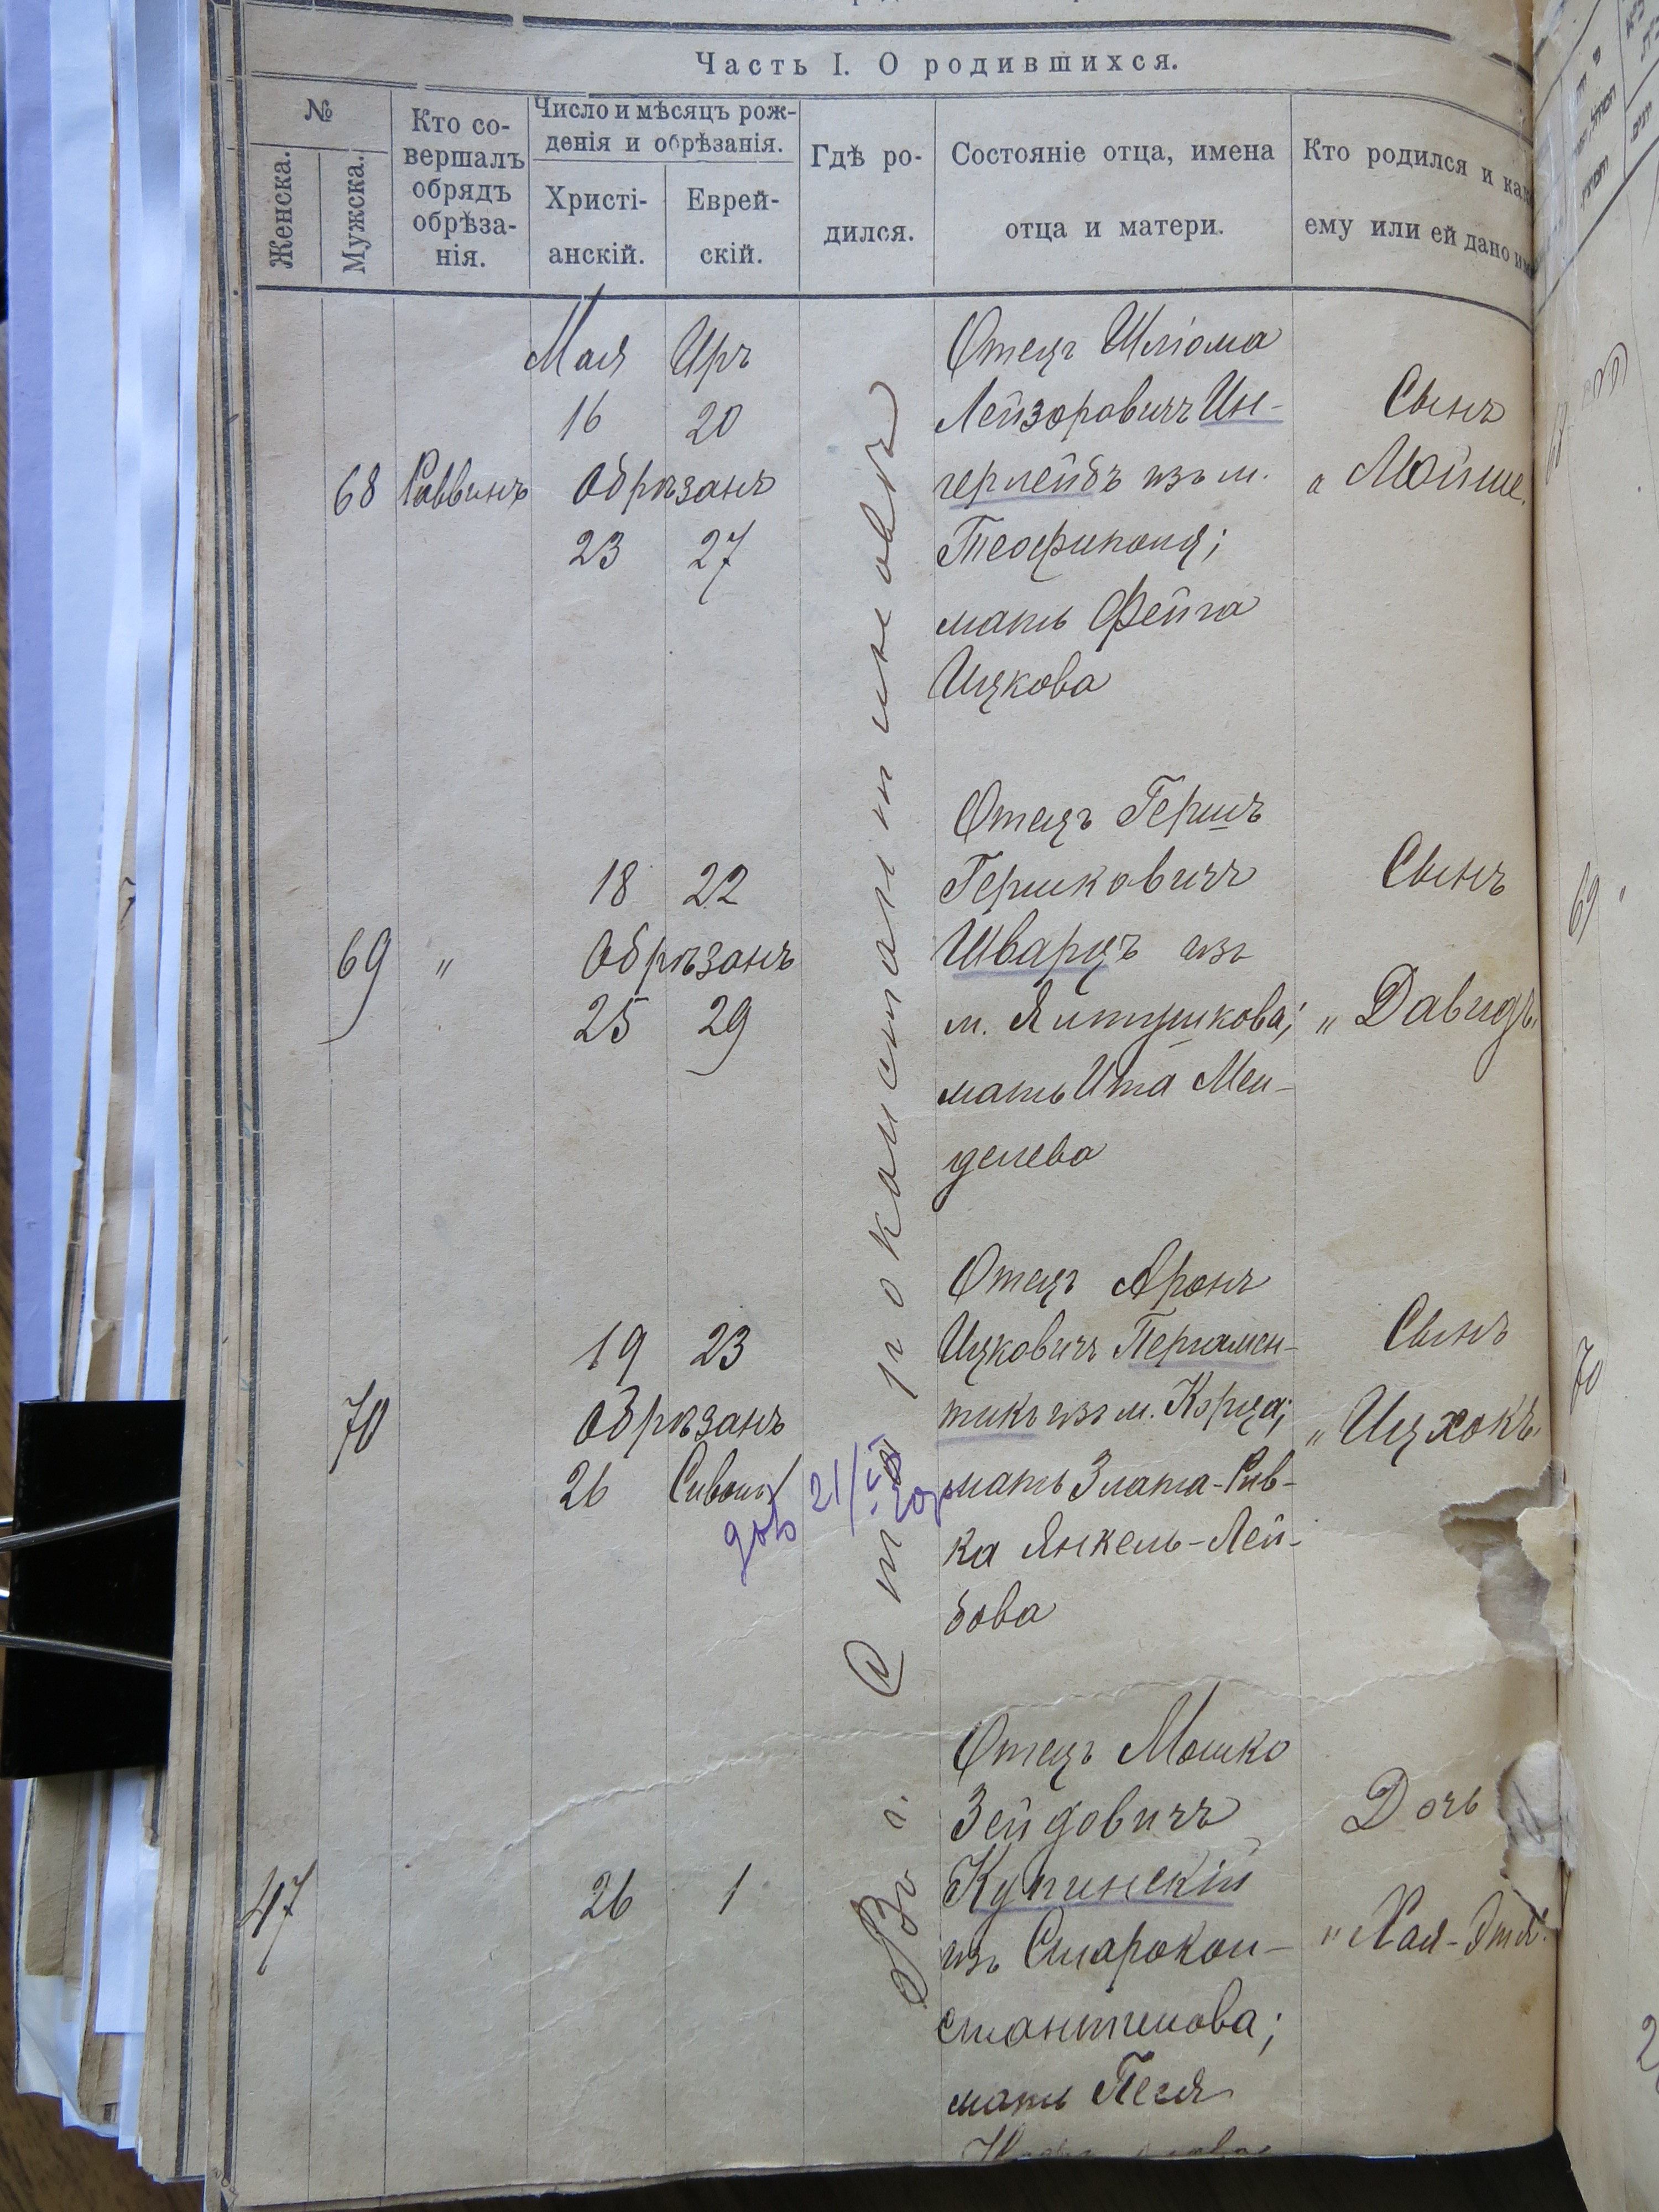 Часть I. О родившихся.
№
Женска.
Мужска.
Кто со-
вершалъ
обрядъ
обрѣза-
нія.
Число и мѣсяцъ рож-
денія и обрѣзанія.
Христі-
анскій.
Еврей-
скій.
Гдѣ ро-
дился.
Состояніе отца, имена
отца и матери.
Кто родился и как
ему или ей дано им
Въ г. Староконстантиновѣ
Мая Иръ
16 20
68 Раввинъ Обрѣзанъ
23 27
Отецъ Шліома
Лейзоровичъ Ин-
герлейбъ изъ м.
Теофиполя;
мать Фейга
Ицкова
Сынъ
„ Мойше.
18 22
69 „ Обрѣзанъ
25 29
Отецъ Гершъ
Гершковичъ
Шварцъ изъ
м. Ялтушкова;
мать Ита Мен-
делева
Сынъ
„ Давидъ.
19 23
70 Обрѣзанъ
26 Сиванъ
21/
Отецъ Аронъ
Ицковичъ Пергамен-
тикъ изъ м. Корца;
мать Злата-Рив-
ка Янкель-Лей-
бова
Сынъ
„ Ицхокъ.
47 26 1
Отецъ Мошко
Зейдовичъ
Купинскій
изъ Старокон-
стантинова;
мать Песя
Дочь
„ Хая-Этя.
69 „
70